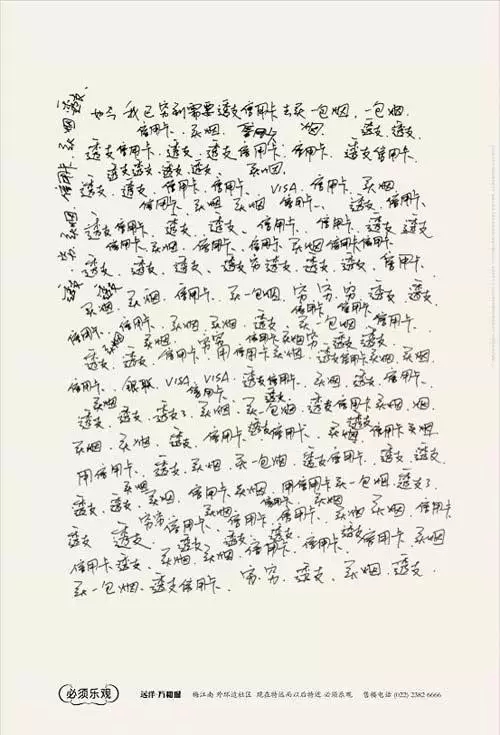 如今 我已穷到需要透支信用卡去买一包烟，一包烟.
信用卡. 买烟. 信用卡 烟. 透支. 透支.
透支信用卡. 透支. 透支信用卡. 信用卡. 透支信用卡.
透支透支. 透支. 透支. 买烟.
透支. 透支. 信用卡. 信用卡. VISA. 信用卡. 买烟
信用卡. 买烟 买烟 信用卡. 透支 信用卡.
透支信用卡. 透支. 透支. 信用卡. 信用卡. 透支 透支
信用卡. 买烟. 信用卡. 信用卡. 买烟信用卡信用卡.
透支. 透支. 透支. 透支穷透支. 透支. 透支. 信用卡.
买烟. 买烟. 信用卡. 买一包烟. 穷. 穷. 穷. 透支 透支.
信用卡. 信用卡
信用卡. 信用卡. 买烟 买烟. 透支 买一包烟. 信用卡.
买烟 买烟. 穷穷. 信用卡买烟穷. 透支
透支. 透支. 信用卡 用信用卡买烟. 透支信用卡买烟 买烟.
信用卡. 银联. VISA. VISA. 透支信用卡. 买烟. 透支. 信用卡.
买烟 信用卡. 透支
透支. 透支. 透支了. 买烟. 买一包烟. 透支信用卡买烟. 烟.
买烟. 买烟. 透支. 信用卡 透支信用卡. 买烟 信用卡买烟.
用信用卡. 透支. 买烟. 买一包烟. 透支信用卡. 透支 透支.
买烟
透支. 透支. 买烟. 信用卡买烟. 用信用卡买一包烟. 透支了.
信用卡. 买烟
穷穷. 信用卡. 信用卡. 信用卡. 买烟 买烟. 信用卡
透支 透支 透支 透支. 透支. 透支
信用卡透支. 买烟. 买烟. 信用卡. 信用卡. 信用卡. 买烟
买一包烟. 透支信用卡. 穷. 穷. 透支. 买烟. 透支.
透支.
买烟
信用卡.
买烟
穷.
透支 透支
必须乐观
远洋·万和城 梅江南 外环边社区 现在特远而以后特近 必须乐观 售楼电话 (022) 2382 6666